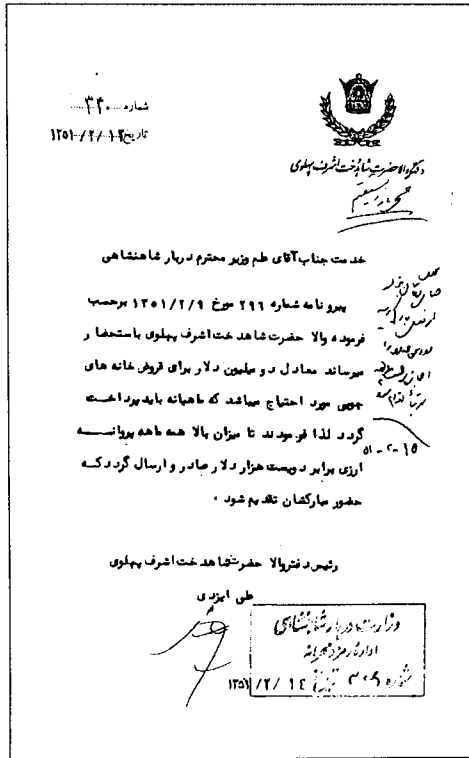 شماره ۳۴۰
تاریخ ۱۳۵۱/۲/۱۲
دفتر والاحضرت شاهدخت اشرف پهلوی
خدمت جناب آقای علم وزیر محترم دربار شاهنشاهی
پیرو نامه شماره ۲۹۶ مورخ ۱۳۵۱/۲/۹ برحسب
فرموده والا حضرت شاهدخت اشرف پهلوی باستحضار
میرساند معادل دو میلیون دلار برای قروض خانه های
جوبی مورد احتیاج میباشد که ماهیانه باید پرداخت
گردد لذا فرمودند تا میزان بالا همه ماهه پروانه
ارزی برابر دویست هزار دلار صادر و ارسال گردد که
حضور مبارکشان تقدیم شود ۰
۱۵-۲-۵۱
رئیس دفتر والا حضرت شاهدخت اشرف پهلوی
علی ایزدی
وزارت دربار شاهنشاهی
اداره رمز و محرمانه
شماره ۳۰۹
۱۳۵۱/۲/۱٤